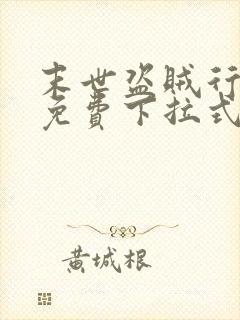 末世盗贼行
免费下拉式
黄城根